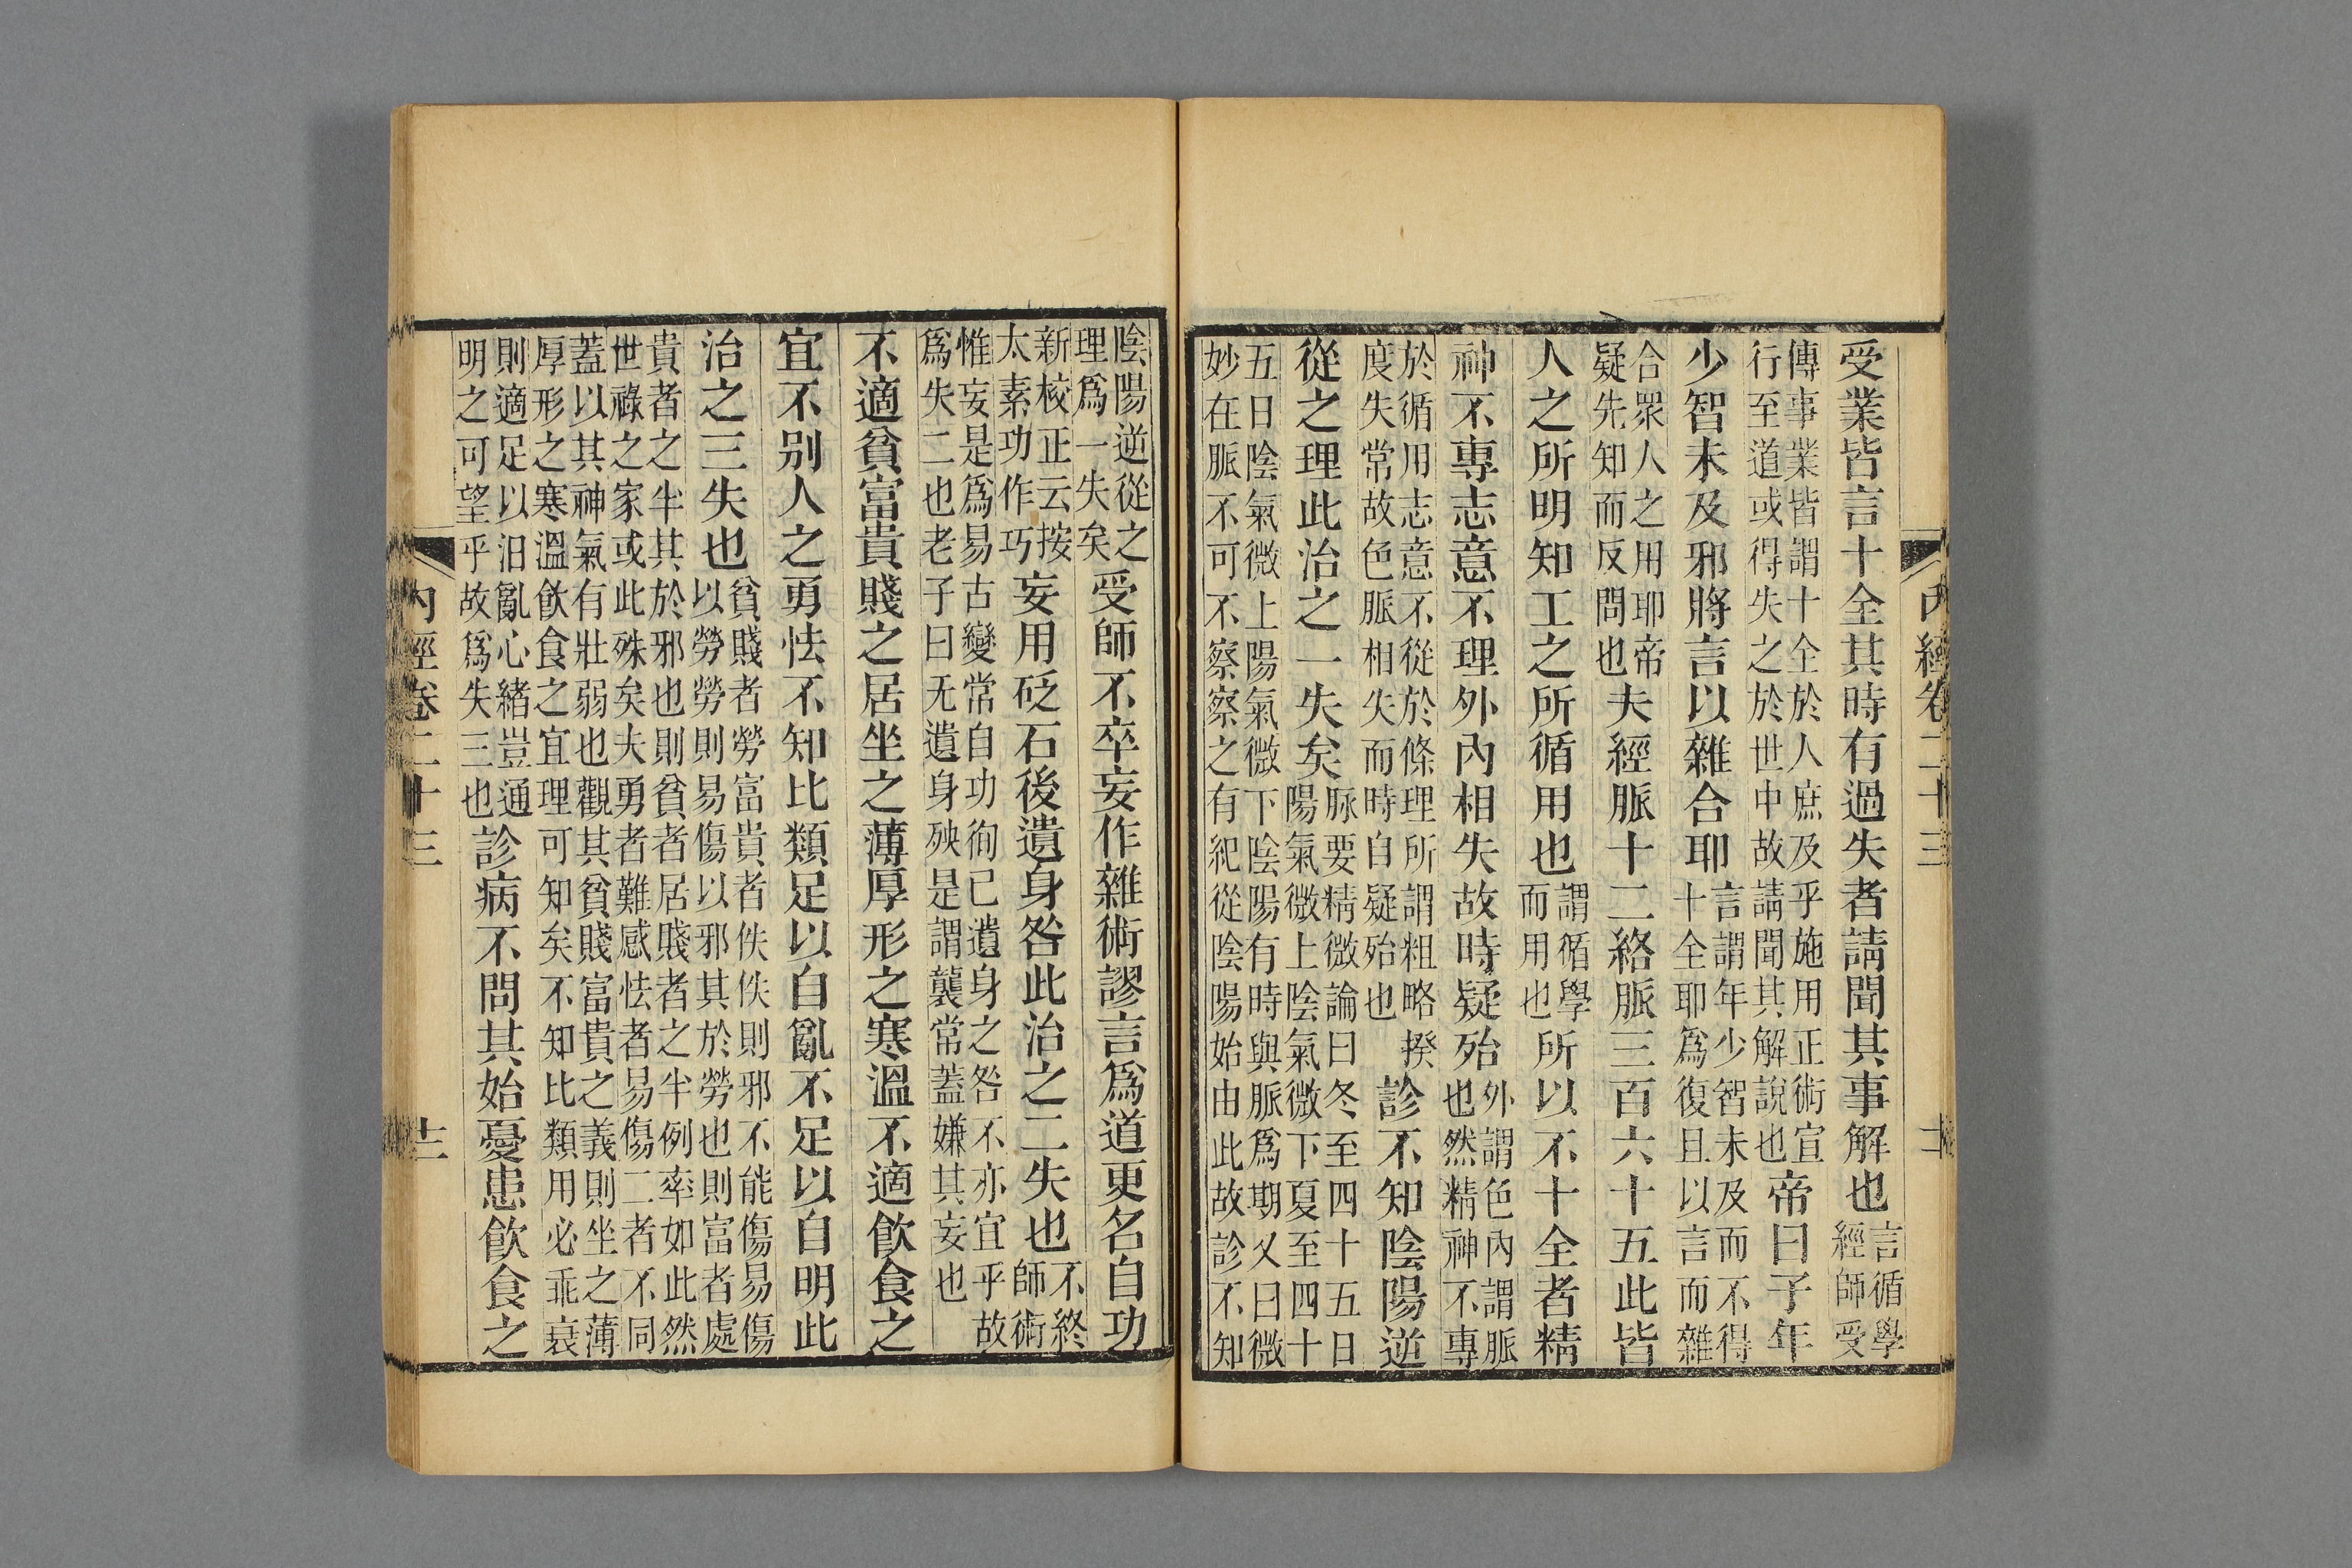 受業皆言十全其時有過失者請聞其事解也言循學經師受
傳事業皆謂十全於人庶及乎施用正術宣行至道或得失之於世中故請聞其解說也帝曰子年
少智未及邪將言以雜合耶言謂年少智未及而不得十全耶爲復且以言而雜
合眾人之用耶帝疑先知而反問也夫經脈十二絡脈三百六十五此皆
人之所明知工之所循用也謂循學而用也所以不十全者精
神不專志意不理外內相失故時疑殆外謂色內謂脈也然精神不專
於循用志意不從於條理所謂粗略揆度失常故色脈相失而時自疑殆也診不知陰陽逆
從之理此治之一失矣脉要精微論曰冬至四十五日陽氣微上陰氣微下夏至四十
五日陰氣微上陽氣微下陰陽有時與脈爲期又曰微妙在脈不可不察察之有紀從陰陽始由此故診不知
陰陽逆從之理爲一失矣受師不卒妄作雜術謬言爲道更名自功
新校正云按太素功作巧妄用砭石後遺身咎此治之二失也不終師術
惟妄是爲易古變常自功徇已遺身之咎不亦宜乎故爲失二也老子曰无遺身殃是謂襲常蓋嫌其妄也
不適貧富貴賤之居坐之薄厚形之寒溫不適飲食之
宜不别人之勇怯不知比類足以自亂不足以自明此
治之三失也貧賤者勞富貴者佚佚則邪不能傷易傷以勞勞則易傷以邪其於勞也則富者處
貴者之半其於邪也則貧者居賤者之半例率如此然世祿之家或此殊矣夫勇者難感怯者易傷二者不同
蓋以其神氣有壯弱也觀其貧賤富貴之義則坐之薄厚形之寒溫飲食之宜理可知矣不知比類用必乖衰
則適足以汨亂心緒豈通明之可望乎故爲失三也診病不問其始憂患飲食之
內經卷二十三